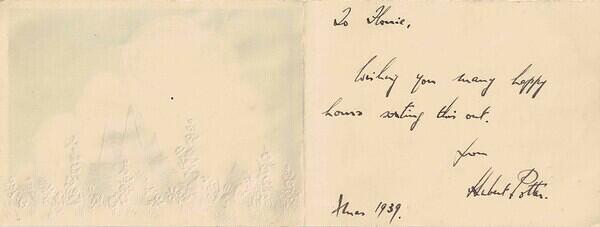 To Florrie,
Wishing you many happy
hours sorting this out.
from
Hubert Potter.
Xmas 1939.